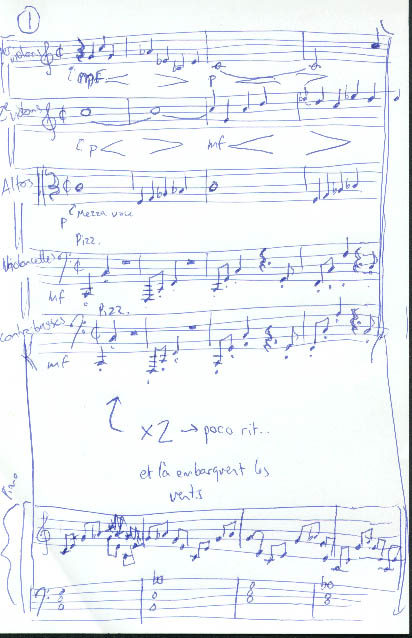 1
1ers violons
mf
p
2e violons
p
mf
Altos
p
Mezza voce
Pizz.
Violoncelles
mf
Pizz.
contrebasses
mf
x2 → poco rit..
et là embarquent les
vents
Piano